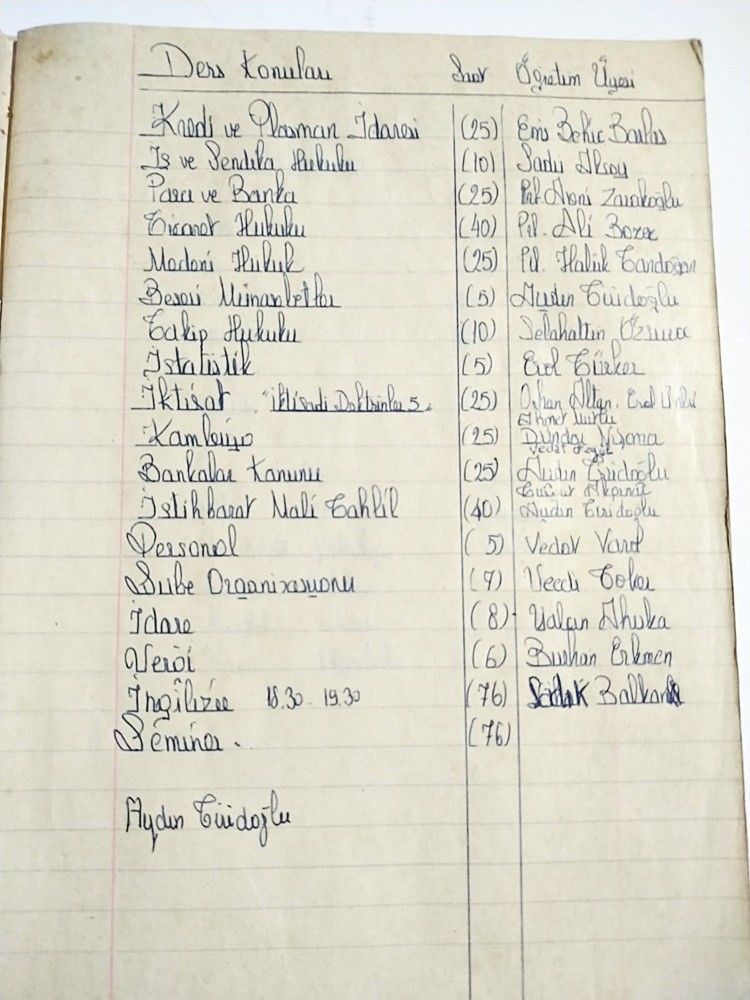 Ders Konuları Saat Öğretim Üyesi
Kredi ve Plasman İdaresi (25) Enis Behiç Barlas
İş ve Sendika Hukuku (10) Sadu Aksoy
Para ve Banka (25) Prf. Avni Zarakoğlu
Ticaret Hukuku (40) Prf. Ali Bozer
Medeni Hukuk (25) Prf. Haluk Tandoğan
Beşeri Münasebetler (5) Aydın Tiridoğlu
Takip Hukuku (10) Selahattin
İstatistik (5) Erol Türker
İktisat "İktisadi Doktrinler 5" (25) Orhan Altan, Erol
Ahmet
Kambiyo (25) Dündar
Vedat
Bankalar Kanunu (25) Aydın Tiridoğlu
Turgut Akpınar
İstihbarat Mali Tahlil (40) Aydın Tiridoğlu
Personel (5) Vedat Varol
Şube Organizasyonu (7) Vecdi Toker
İdare (8) Yalçın Ahuka
Vergi (6) Burhan Erkmen
İngilizce 18.30 - 19.30 (76) Sadık Balkan
Seminer. (76)
Aydın Tiridoğlu